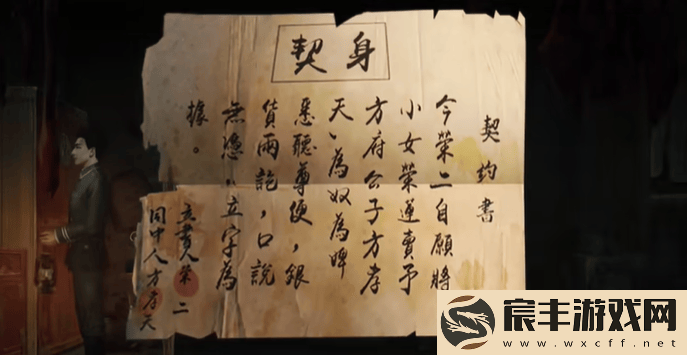 身契
契約書
今榮二自願將
小女榮蓮賣予
方府公子方孝
天、為奴為婢
悉聽尊便，銀
貨兩訖，口說
無憑，立字為
據。
立書人榮二
同中人方孝天
宸丰游戏网
www.wxcff.net